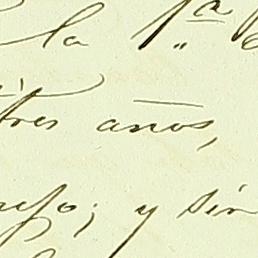 la 1ª
tres años,
; y sin